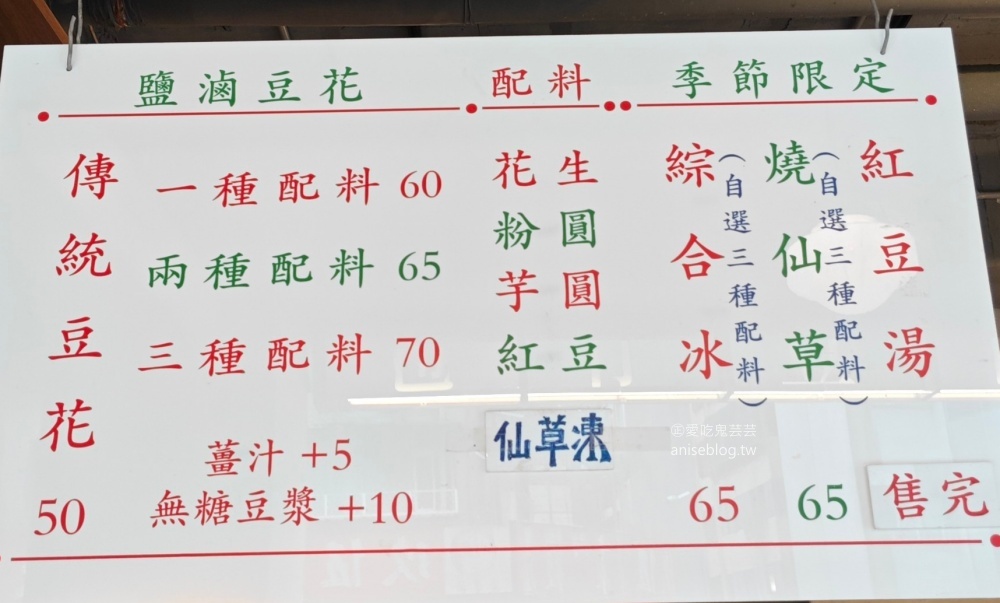 鹽滷豆花
傳統豆花
50
一種配料 60
兩種配料 65
三種配料 70
薑汁 +5
無糖豆漿 +10
配料
花生
粉圓
芋圓
紅豆
仙草凍
季節限定
綜合冰
(自選三種配料)
65
燒仙草
(自選三種配料)
65
紅豆湯
售完
愛吃鬼芸芸
aniseblog.tw